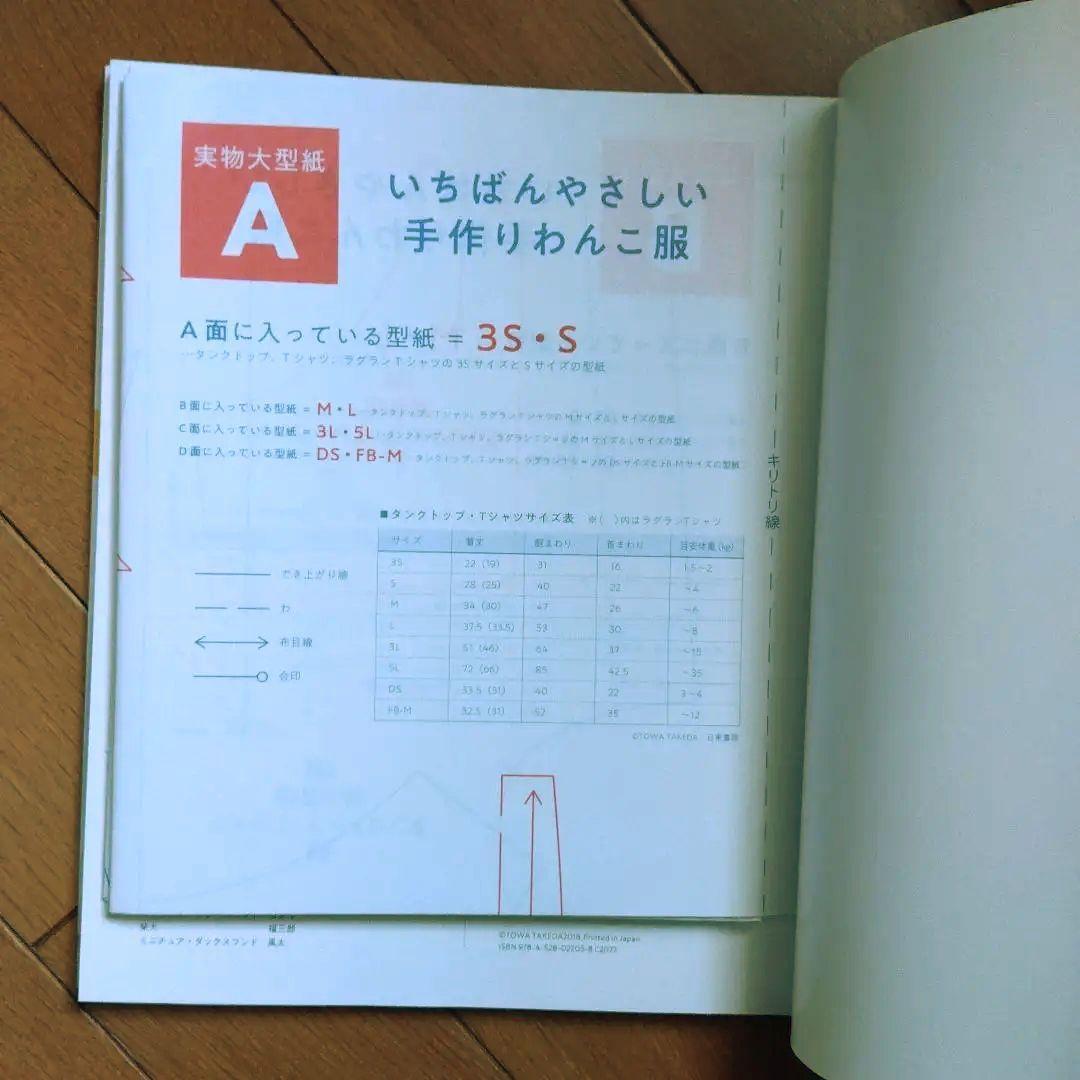 実物大型紙
A
いちばんやさしい
手作りわんこ服
A面に入っている型紙 = 3S・S
…タンクトップ、Tシャツ、ラグランTシャツの3SサイズとSサイズの型紙
B面に入っている型紙 = M・L …タンクトップ、Tシャツ、ラグランTシャツのMサイズとLサイズの型紙
C面に入っている型紙 = 3L・5L …タンクトップ、Tシャツ、ラグランTシャツのMサイズとLサイズの型紙
D面に入っている型紙 = DS・FB-M …タンクトップ、Tシャツ、ラグランTシャツのDSサイズとFB-Mサイズの型紙
キリトリ線
■タンクトップ・Tシャツサイズ表 ※( )内はラグランTシャツ
サイズ 着丈 胴まわり 首まわり 目安体重(kg)
3S 22(19) 31 16 1.5~2
S 28(25) 40 22 ~4
M 34(30) 47 26 ~6
L 37.5(33.5) 53 30 ~8
3L 51(46) 64 37 ~15
5L 72(66) 85 42.5 ~35
DS 33.5(31) 40 22 3~4
FB-M 32.5(31) 52 35 ~12
©TOWA TAKEDA 日東書院
でき上がり線
わ
布目線
合印
柴犬 福三郎
ミニチュア・ダックスフンド 風太
©TOWA TAKEDA2018, Printed in Japan
ISBN 978-4-528-02205-8 C2077